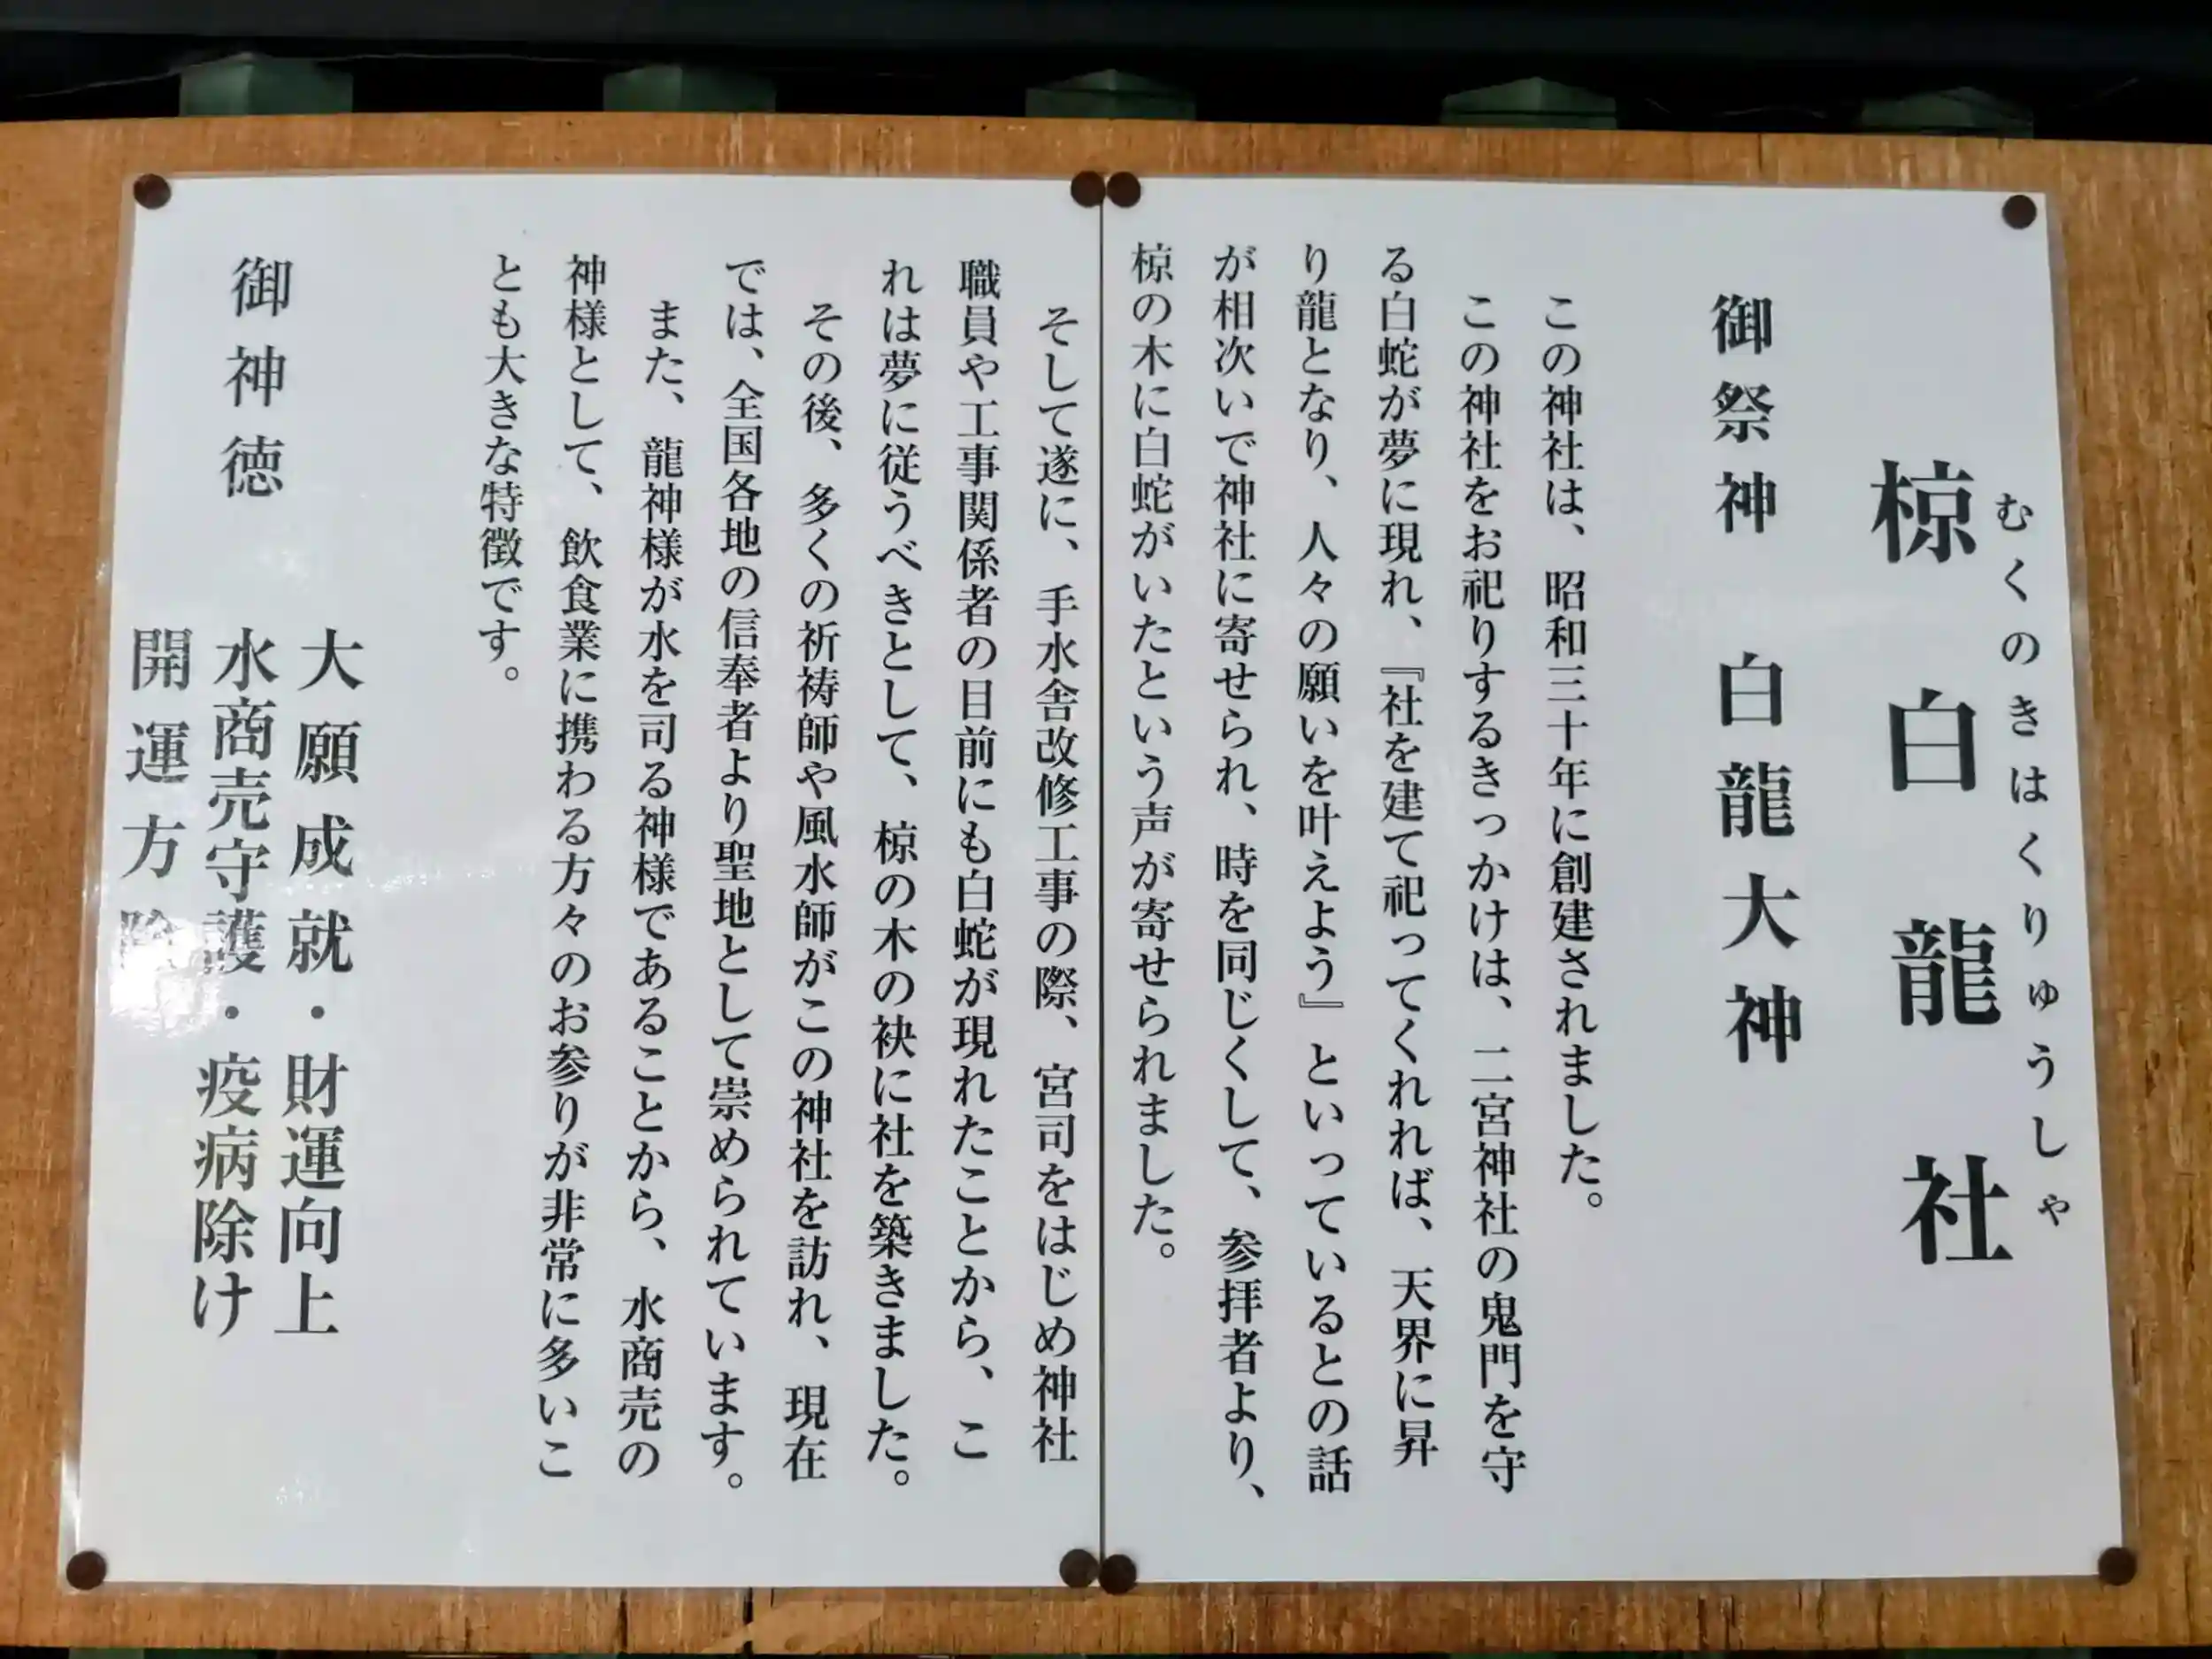 むくのきはくりゅうしゃ
椋白龍社
御祭神　白龍大神
この神社は、昭和三十年に創建されました。
この神社をお祀りするきっかけは、二宮神社の鬼門を守
る白蛇が夢に現れ、『社を建て祀ってくれれば、天界に昇
り龍となり、人々の願いを叶えよう』といっているとの話
が相次いで神社に寄せられ、時を同じくして、参拝者より、
椋の木に白蛇がいたという声が寄せられました。
そして遂に、手水舎改修工事の際、宮司をはじめ神社
職員や工事関係者の目前にも白蛇が現れたことから、こ
れは夢に従うべきとして、椋の木の袂に社を築きました。
その後、多くの祈祷師や風水師がこの神社を訪れ、現在
では、全国各地の信奉者より聖地として崇められています。
また、龍神様が水を司る神様であることから、水商売の
神様として、飲食業に携わる方々のお参りが非常に多いこ
とも大きな特徴です。
御神徳
大願成就・財運向上
水商売守護・疫病除け
開運方除